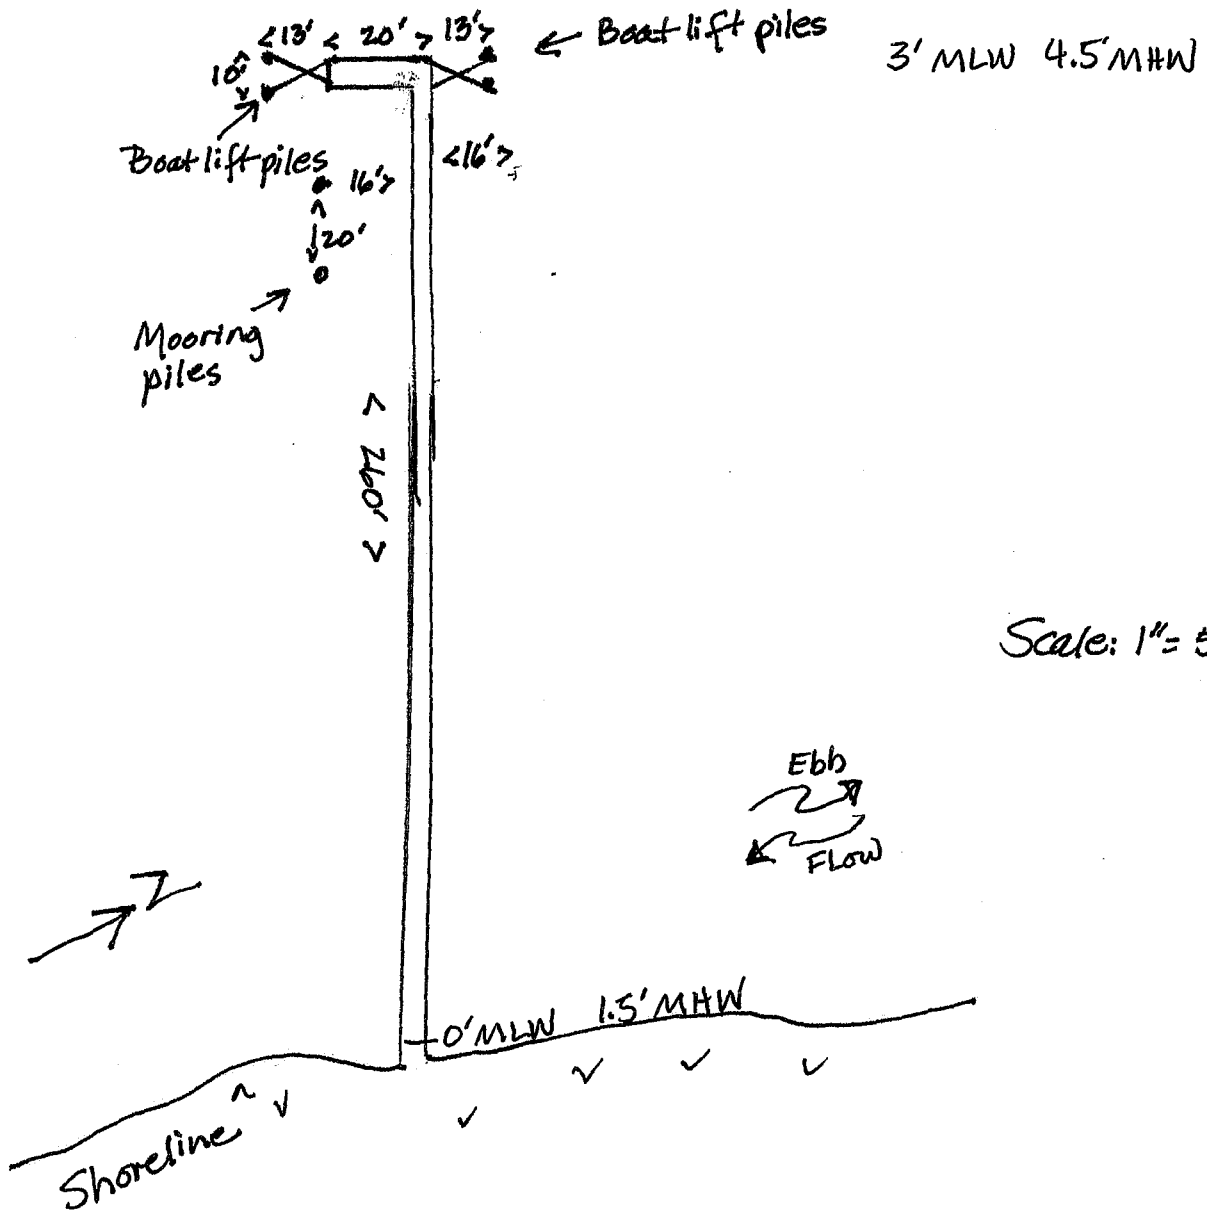 <13' < 20' > 13'>
← Boat lift piles
3' MLW 4.5' MHW
10'
Boat lift piles
<16'>
16'>
20'
Mooring
piles
< 260' >
Scale: 1"=
Ebb
FLOW
N
0' MLW 1.5' MHW
Shoreline